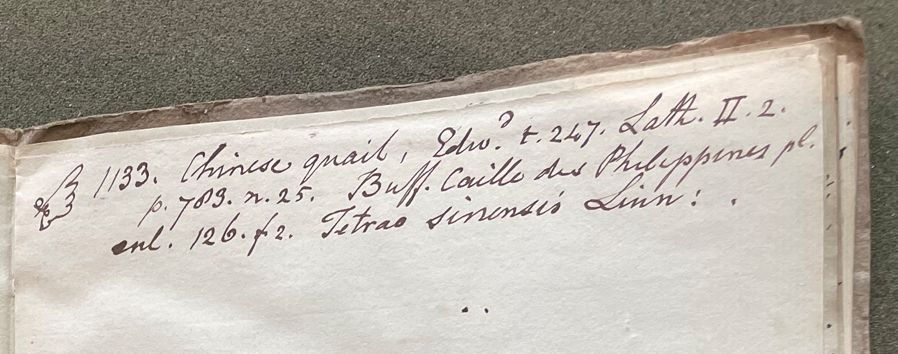 1133. Chinese quail, Edw.d t. 247. Lath. II. 2.
p. 783. n. 25. Buff. Caille des Philippines pl.
enl. 126. f 2. Tetrao sinensis Linn: